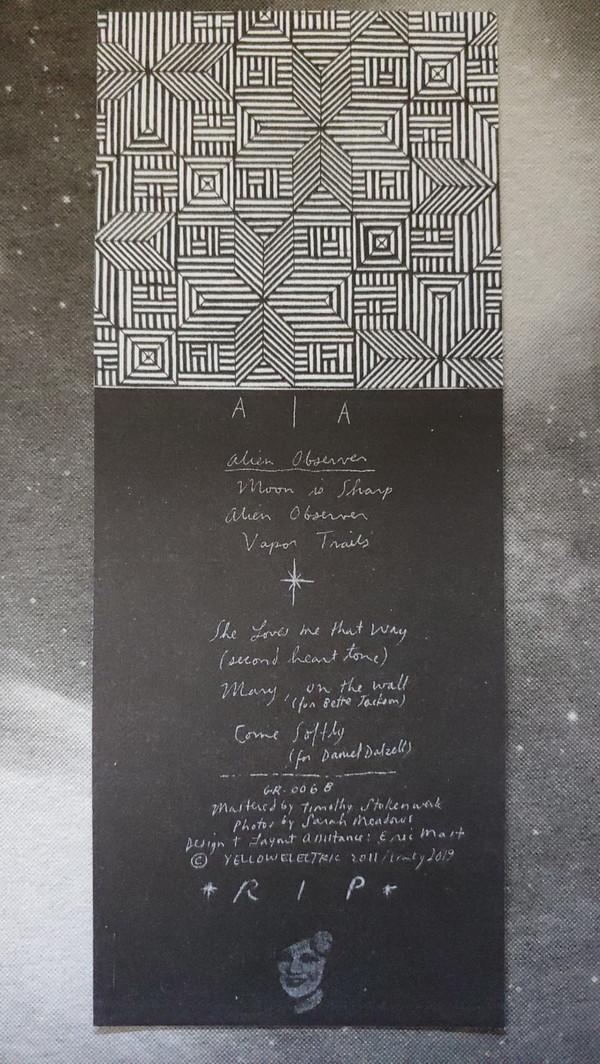 A | A
Alien Observer
Moon is Sharp
Alien Observer
Vapor Trails
She Loves me that way
(second heart tone)
Mary, on the wall
(for Bette Jackson)
Come Softly
(for Daniel Dalzell)
GR-006 B
Mastered by Timothy Stollenwerk
Photos by Sarah Meadows
Design + Layout Assistance: Eric Mast
© YELLOWELECTRIC 2011/ 2019
R I P